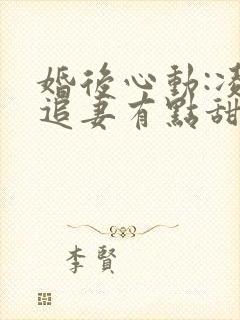 婚後心動:凌
追妻有點甜
李賢